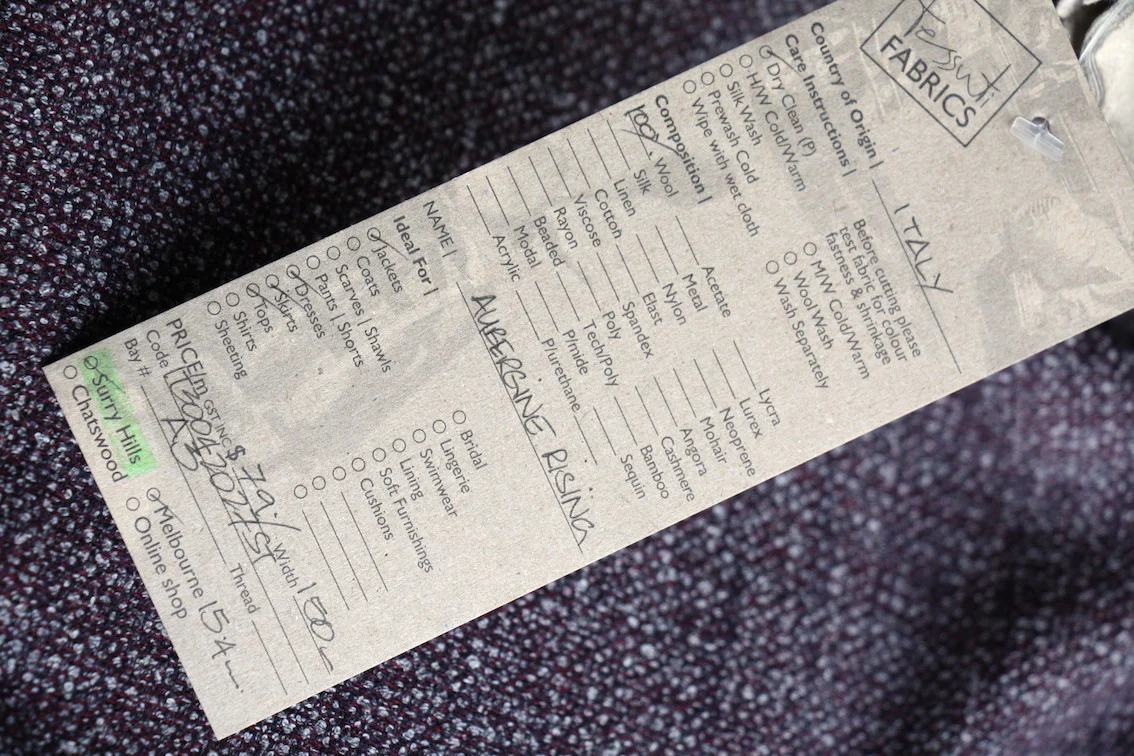 Tessuti
FABRICS
Country of Origin | ITALY
Care Instructions |
Dry Clean (P)
H/W Cold/Warm
Silk Wash
Prewash Cold
Wipe with wet cloth
Before cutting please
test fabric for colour
fastness & shrinkage
M/W Cold/Warm
Wool Wash
Wash Separately
Composition |
100% Wool
Silk
Linen
Cotton
Viscose
Rayon
Beaded
Modal
Acrylic
Acetate
Metal
Nylon
Elast
Spandex
Poly
Tech/Poly
P/mide
P/urethane
Lycra
Lurex
Neoprene
Mohair
Angora
Cashmere
Bamboo
Sequin
NAME | AUBERGINE RISING
Ideal For |
Jackets
Coats
Scarves | Shawls
Pants | Shorts
Dresses
Skirts
Tops
Sheeting
Bridal
Lingerie
Swimwear
Lining
Soft Furnishings
Cushions
PRICE/m GST INC $ 79./ Width | 150
Code
Bay # A3 Thread
Surry Hills
Chatswood
Melbourne
Online shop